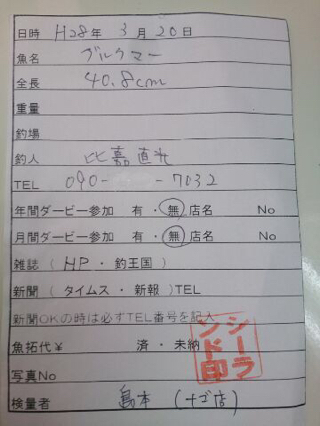 日時 H28年 3月20日
魚名 ブルクマー
全長 40.8cm
重量
釣場
釣人 比嘉直光
TEL 090- -7032
年間ダービー参加 有・無 店名 No
月間ダービー参加 有・無 店名 No
雑誌 ( HP ・ 釣王国 )
新聞 ( タイムス ・ 新報 ) TEL
新聞OKの時は必ずTEL番号を記入
魚拓代¥ 済 ・ 未納
写真No
検量者 島本 (ナゴ店)
シーランド印